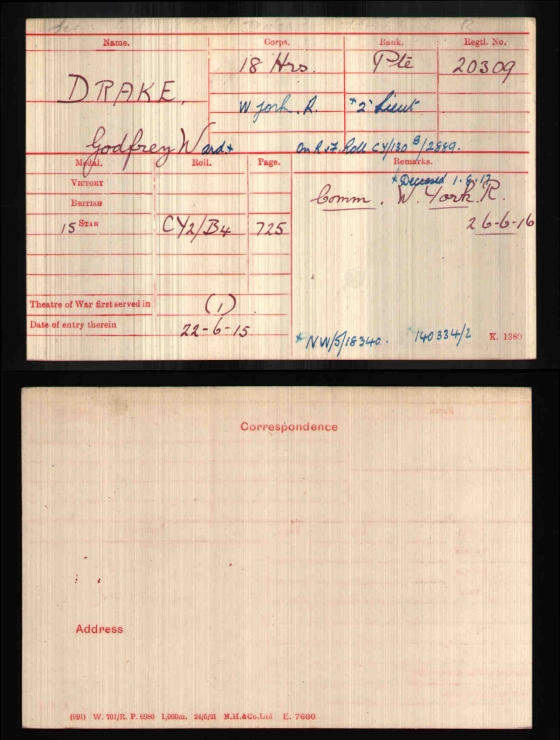 Name. Corps. Rank. Regtl. No.
DRAKE, 18 Hrs. Pte 20309
W York. R. * 2" Lieut
Godfrey Ward+ On R.I.F. Roll CY/130 B/2889.
Medal. Roll. Page. Remarks.
VICTORY * Deceased 1.8.17
BRITISH Comm. W. York. R.
15 STAR CY2/B4 725 26-6-16
Theatre of War first served in (1)
Date of entry therein 22-6-15
* NW/5/18340. 140334/2 K. 1380
Correspondence
Address
(991) W. 701/R. P. 6980 1,000m. 24/5/21 N.H.&Co.Ltd E. 7600